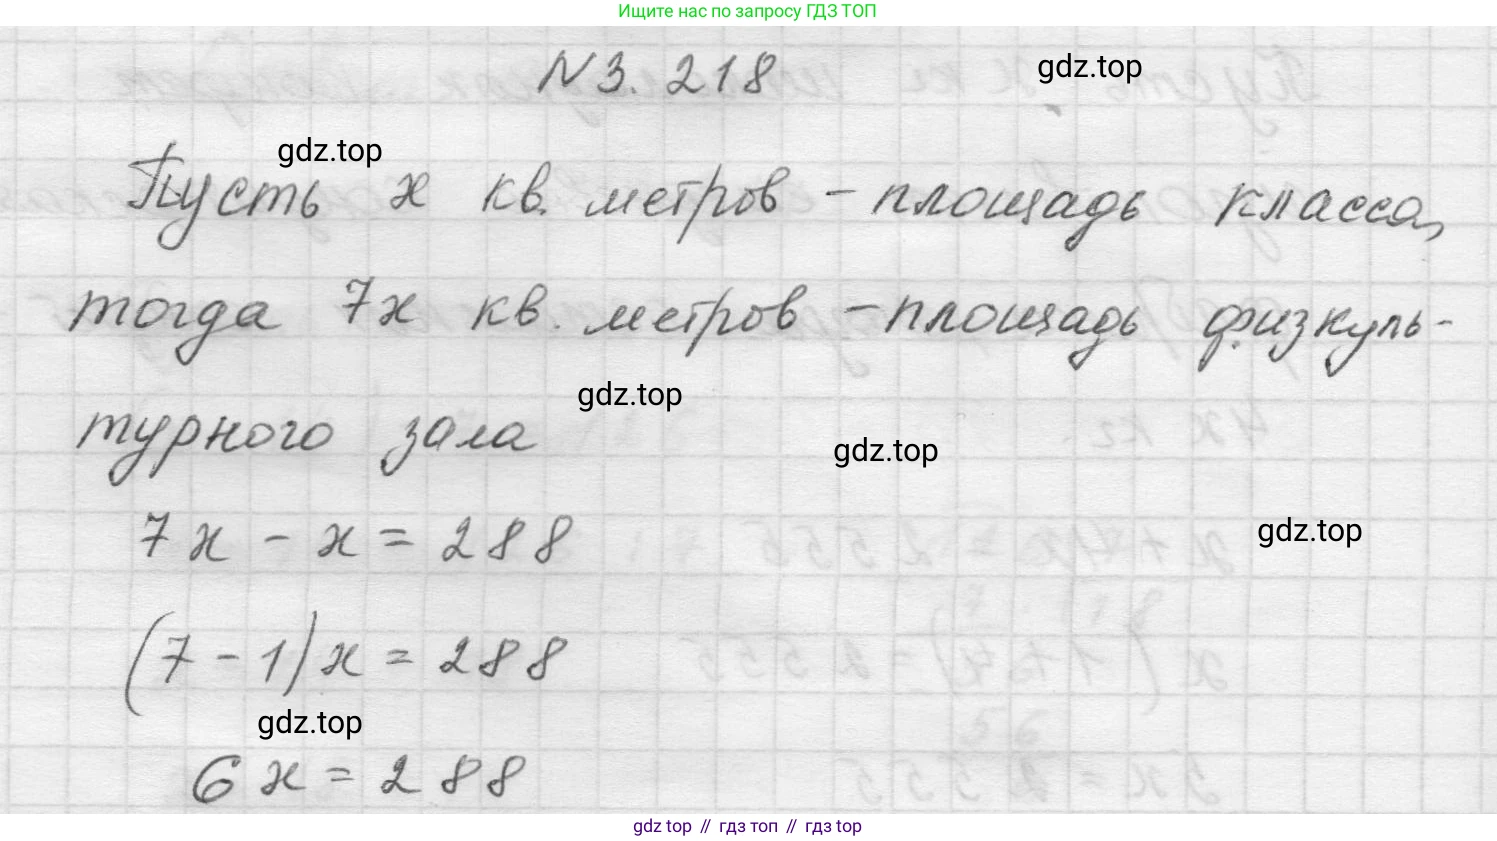 Ищите нас по запросу ГДЗ ТОП
N3.218
gdz.top
gdz.top
Пусть x кв. метров – площадь класса,
тогда 7x кв. метров – площадь физкуль-
gdz.top
турного зала
gdz.top
7x - x = 288
gdz.top
(7 - 1)x = 288
gdz.top
6x = 288
gdz top // гдз топ // гдз top